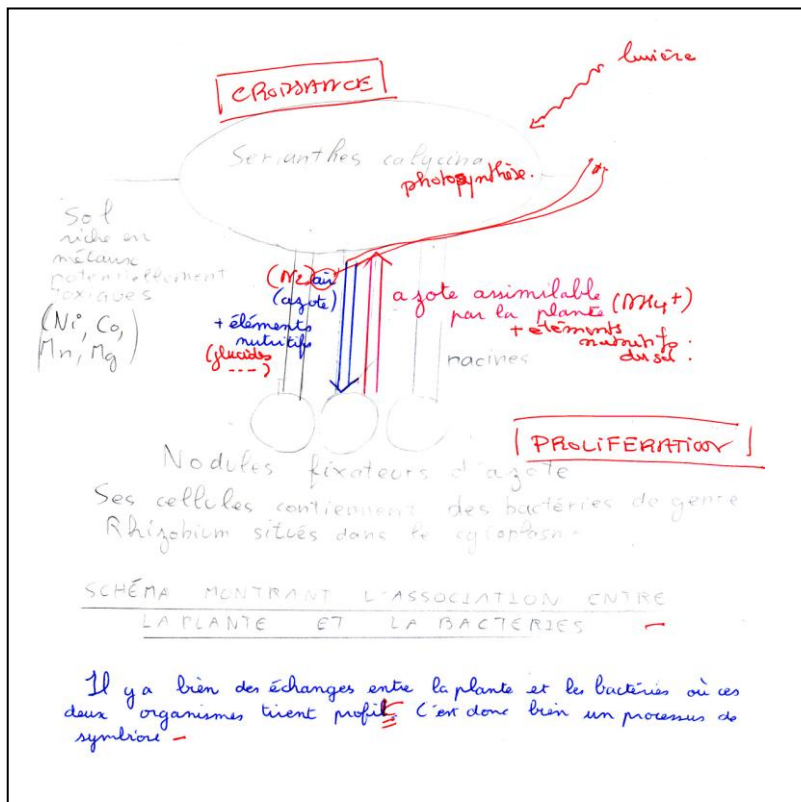 lumière
CROISSANCE
Serianthes calycina
photosynthèse.
Sol
riche en
métaux
potentiellement
toxiques
(Ni, Co,
Mn, Mg)
(N2) air
(azote)
+ éléments
nutritifs
(glucides
----)
azote assimilable
par la plante (NH4+)
+ éléments
nutritifs
du sol
racines
PROLIFERATION
Nodules fixateurs d'azote
Ses cellules contiennent des bactéries de genre
Rhizobium situés dans le cytoplasme
SCHÉMA MONTRANT L'ASSOCIATION ENTRE
LA PLANTE ET LA BACTERIES
Il y a bien des échanges entre la plante et les bactéries où ces
deux organismes tirent profit. C'est donc bien un processus de
symbiose